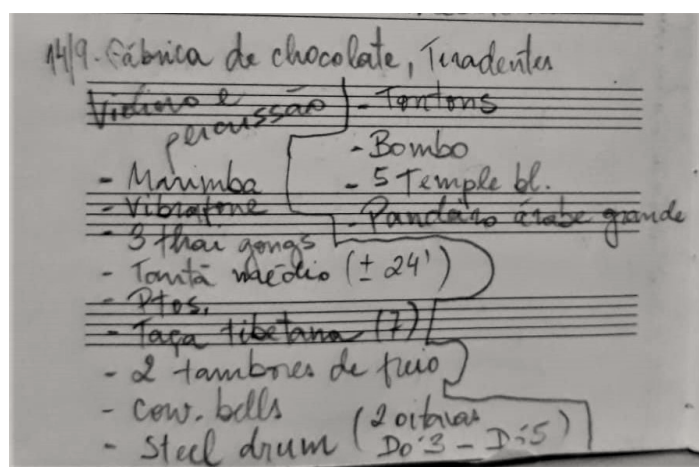 14/9. Fábrica de chocolate, Tiradentes
Violino e
percussão
- Marimba
- Vibrafone
- 3 thai gongs
- Tantã médio (± 24')
- Ptos.
- Taça tibetana (7)
- 2 tambores de freio
- Cow. bells
- Steel drum (2 oitavas
Dó 3 - Dó 5)
- Tontons
- Bombo
- 5 Temple bl.
- Pandeiro árabe grande